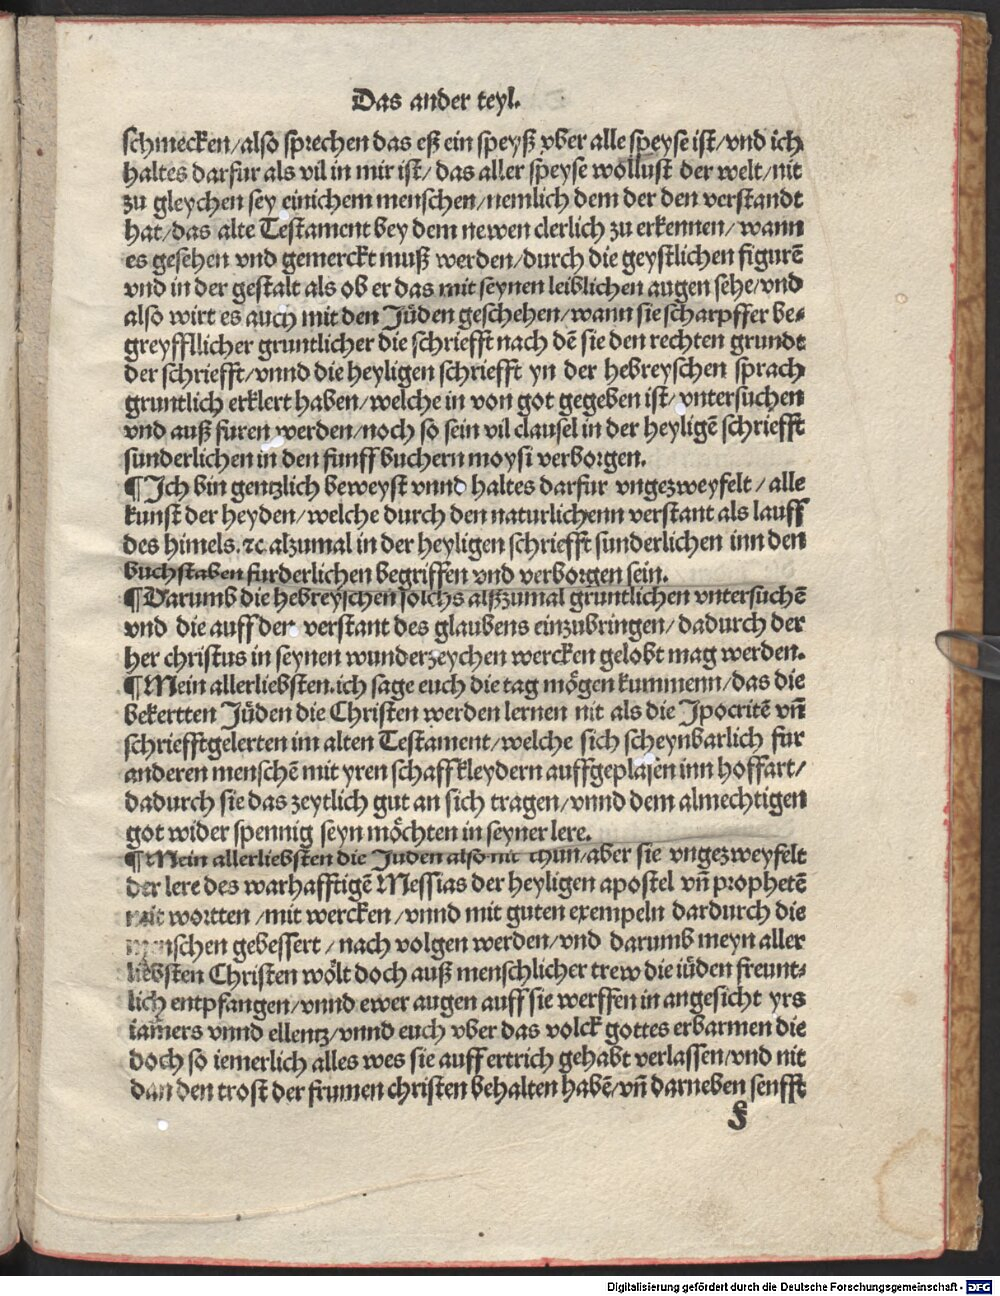 Das ander teyl.
schmecken/also sprechen das eß ein speyß vber alle speyse ist/vnd ich
haltes darfur als vil in mir ist/ das aller speyse wollust der welt/nit
zu gleychen sey einichem menschen/nemlich dem der den verstandt
hat/das alte Testament bey dem newen clerlich zu erkennen/ wann
es gesehen vnd gemerckt muß werden/durch die geystlichen figurē
vnd in der gestalt als ob er das mit seynen leiblichen augen sehe/vnd
also wirt es auch mit den Jüden geschehen/wann sie scharpffer be⸗
greyffllicher gruntlicher die schriefft nach dē sie den rechten grundt
der schriefft/vnnd die heyligen schriefft yn der hebreyschen sprach
gruntlich erklert haben/welche in von got gegeben ist/ vntersuchen
vnd auß furen werden/noch so sein vil clausel in der heyligē schriefft
sunderlichen in den funff buchern moysi verborgen.
¶Ich bin gentzlich beweyst vnnd haltes darfur vngezweyfelt / alle
kunst der heyden/welche durch den naturlichenn verstant als lauff
des himels.⁊c alzumal in der heyligen schriefft sunderlichen inn den
buchstaben furderlichen begriffen vnd verborgen sein.
¶Darumb die hebreyschen solchs alßzumal gruntlichen vntersuchē
vnd die auff der verstant des glaubens einzubringen/dadurch der
her christus in seynen wunderzeychen wercken gelobt mag werden.
¶Mein allerliebsten.ich sage euch die tag mögen kummenn/das die
bekertten Jüden die Christen werden lernen nit als die Ipocritē vn̄
schriefftgelerten im alten Testament/welche sich scheynbarlich fur
anderen menschē mit yren schaffkleydern auffgeplasen inn hoffart/
dadurch sie das zeytlich gut an sich tragen/vnnd dem almechtigen
got wider spennig seyn möchten in seyner lere.
¶Mein allerliebsten die Juden also nit thun/aber sie vngezweyfelt
der lere des warhafftigē Messias der heyligen apostel vn̄ prophetē
mit wortten /mit wercken /vnnd mit guten exempeln dardurch die
menschen gebessert / nach volgen werden/vnd darumb meyn aller
liebsten Christen wölt doch auß menschlicher trew die iüden freunt⸗
lich entpfangen/vnnd ewer augen auff sie werffen in angesicht yrs
iamers vnnd ellentz/vnnd euch vber das volck gottes erbarmen die
doch so iemerlich alles wes sie auff ertrich gehabt verlassen/vnd nit
dan den trost der frumen christen behalten habē/vn̄ darneben senfft
Digitalisierung gefördert durch die Deutsche Forschungsgemeinschaft - DFG